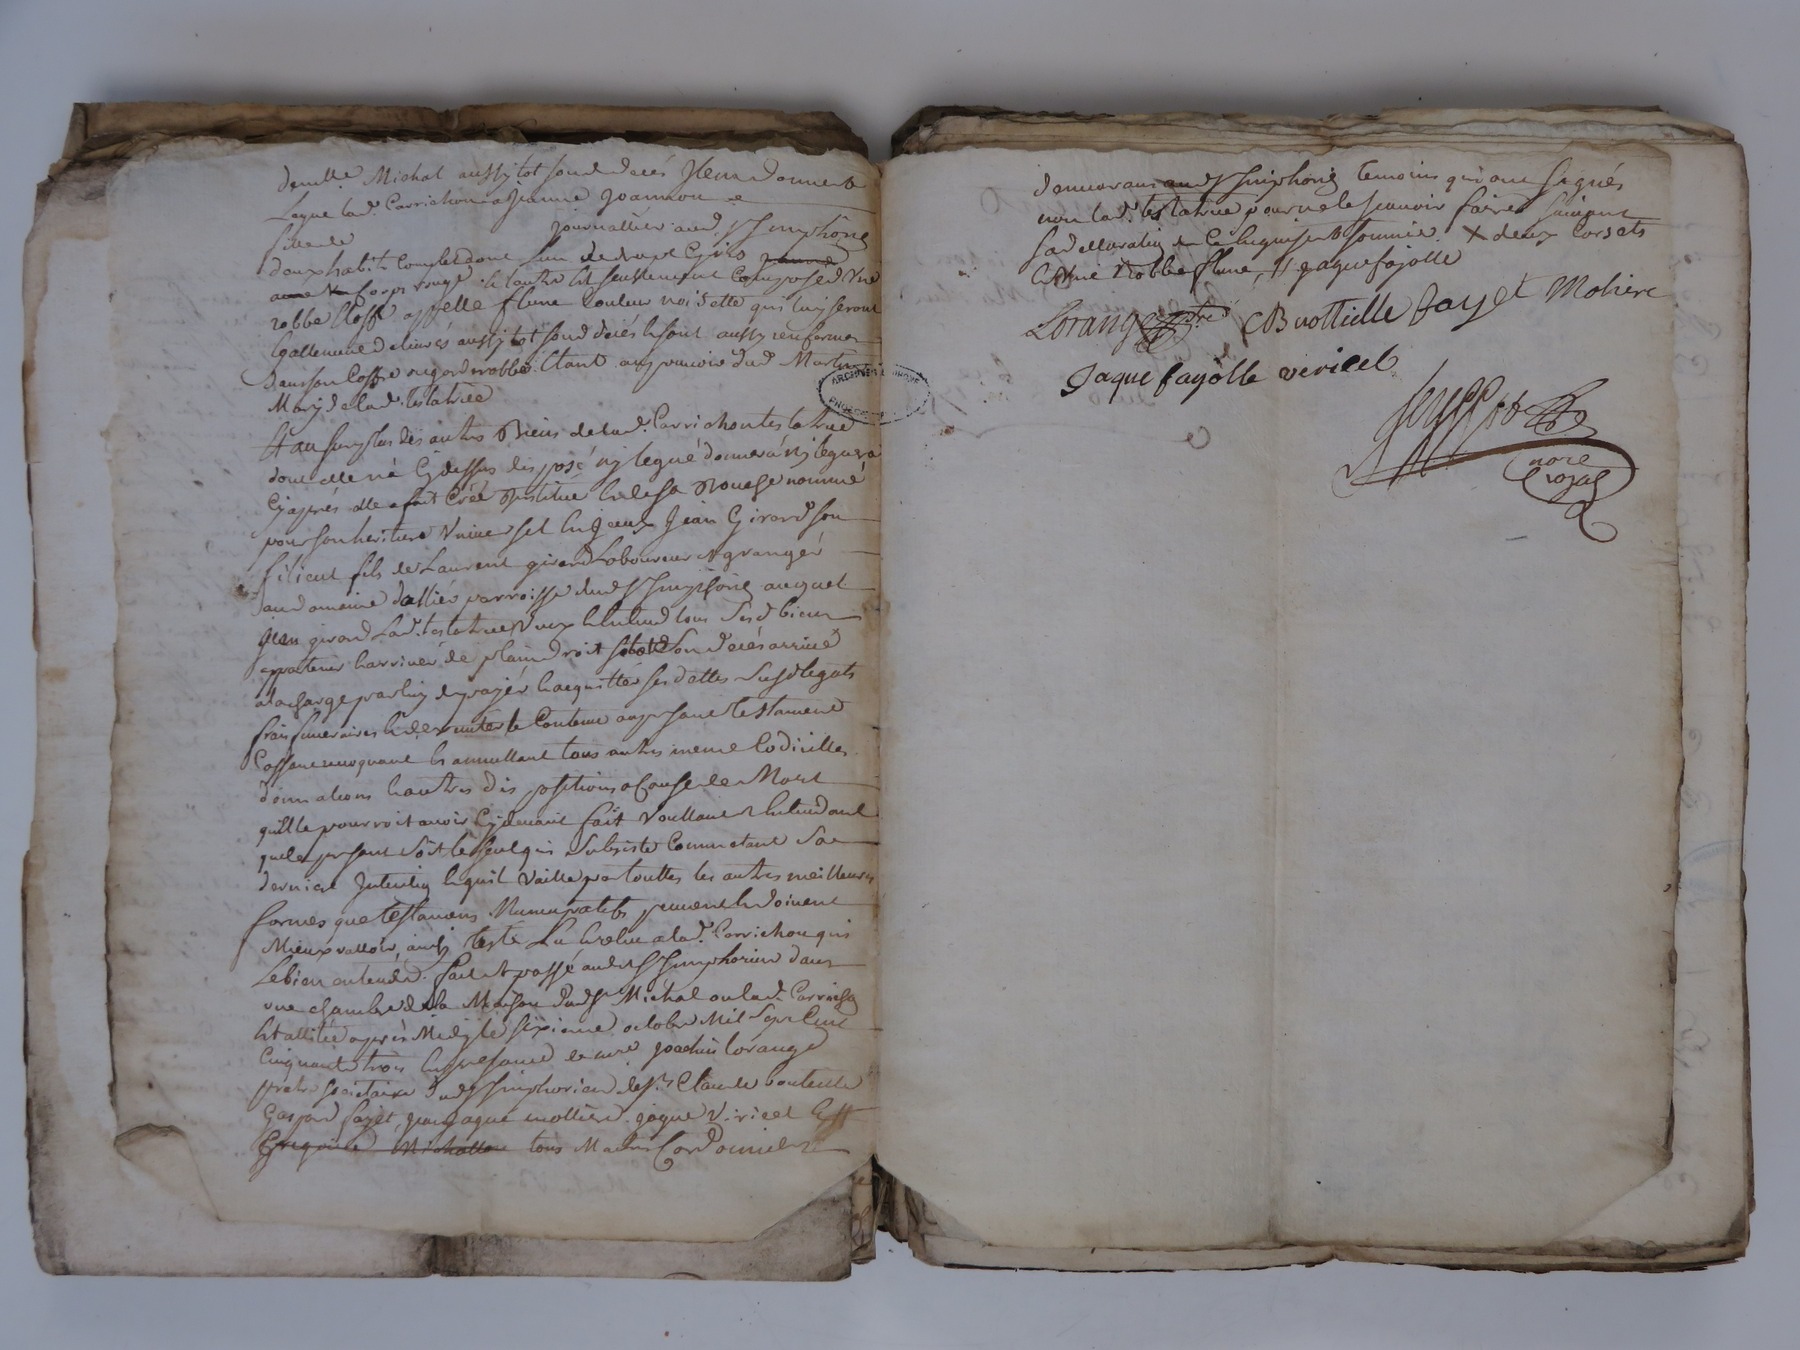 demlle. Michal aussytot son deceds Item donne &
Legue lad. Carrichon a Jeanne Joannon
fille de journallier aud. st Simphorien
deux habits Complets dont l'un de drap gris
corps rouge et l'autre est seullement Composé d'Une
robbe etoffe appellé flune Couleur noisette qui luy seront
Egallement delivrés aussytot son deces et sont aussy renfermés
dans son Coffre ou garderobbe Etant au pouvoir dud. Martin
Mary de lad. testatrice
Et au surplus des autres Biens de lad. Carrichon testatrice
dont elle n'a Cydessus disposé ny legué donnera ny leguera
Cyaprés elle a fait Créé Institué et de sa Bouche nommé
pour son heritier Universel led. Jean Girard son
filieul fils de Laurent girard Laboureur et grangér
au domaine d'allier parroisse dud. st Simphorien auquel
Jean girard Lad. testatrice Veux et Entend tous sesd. biens
appartenir et arriver de plain droit sond. deces arrivé
a la charge par luy de payér et acquitter ses dettes susd. legats
frais funeraires et dexecuter le Contenu au present testament
Cassant revoquant et annullant tous autres meme Codicilles
donnations et autres dispositions a Cause de Mort
quelle pourroit avoir Cydevant fait Voullant et Entendant
que le present soit le seul qui Subsiste Comme etant Sa
derniere Intention et quil Vaille par touttes les autres meilleures
formes que testamens Nuncupatifs peuvent et doivent
Mieux valloir, ainsy testé Lu et relu a lad. Carrichon qui
Le bien entendu. fait et passé aud. st Simphorien dans
une chambre de la Maison dud. sr Michal ou lad. Carrichon
Est allitée aprés Midy le sixieme octobre Mil Sept Cent
Cinquante trois En presence de mre Joachin Lorange
pretre societaire dud. st Simphorien de sr. Claude bouteille
Gaspard fayet, Jean Jaque mollière jaque Viricel Eff
Gregoire Michallon tous Maitres Cordonniers
demeurans aud. st Simphorien temoins qui ont signés
non lad. testatrice pour ne le scavoir faire suivant
sa declaration de Ce Enquise et sommée. X deux Corsets
Et une Robbe flune, // jaque fajolle
Lorange ptre CBouttielle fayet Moliere
Jaque fayolle vericel
nore
royal